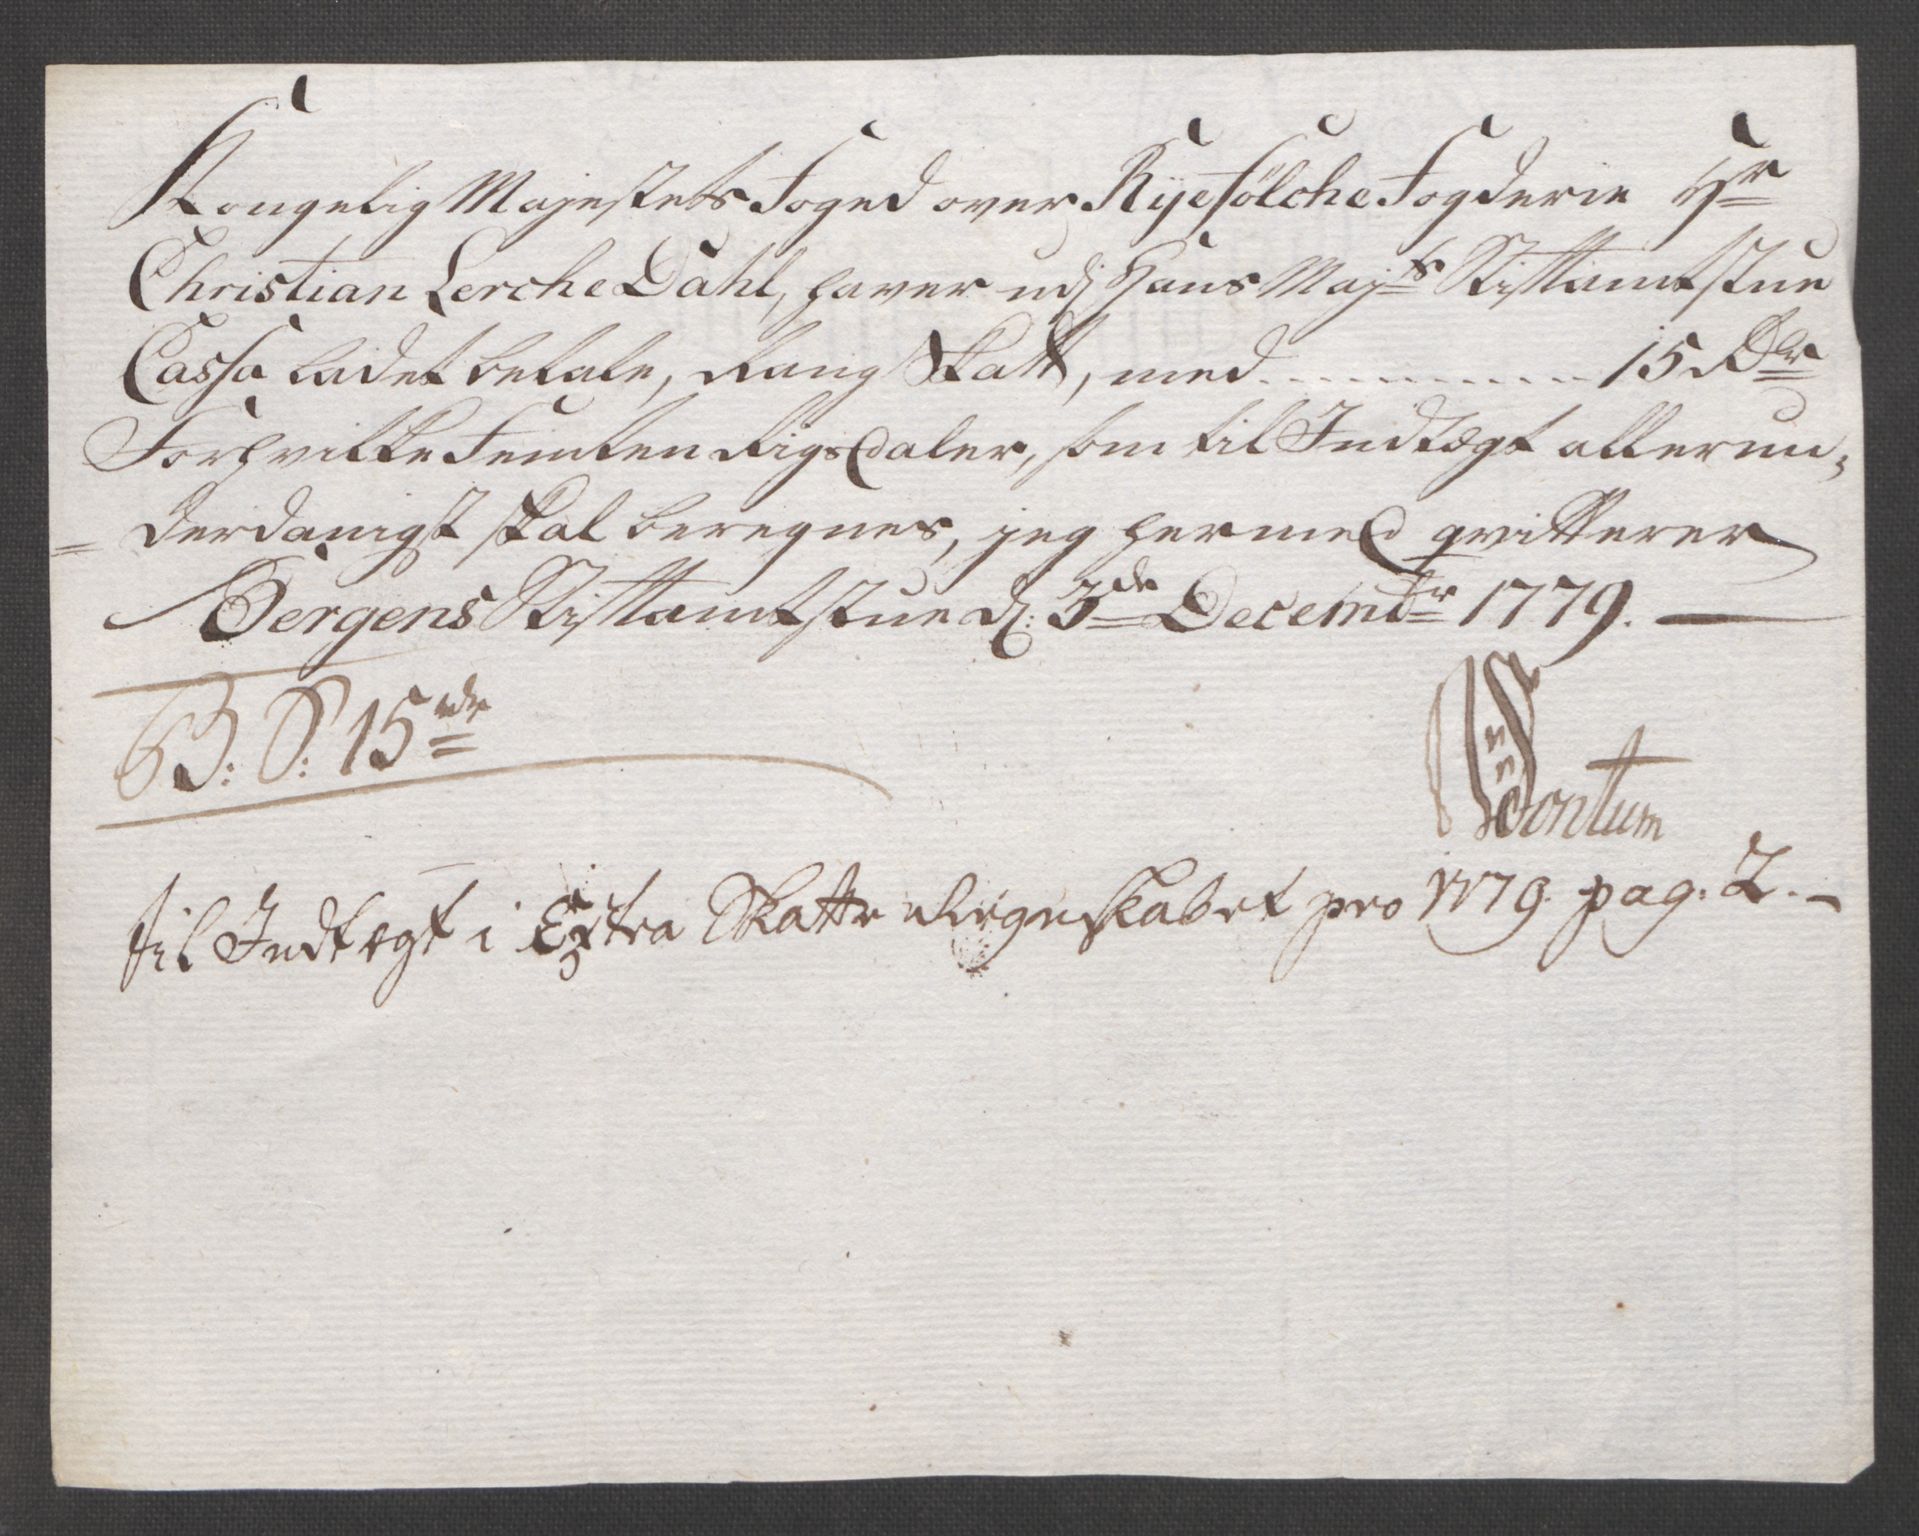 Kongelig Majestets Foged over Ryefölche Fogderie Hr
Christian Lerche Dahl, haver udj Hans Mayts Stiftamtstue
Cassa ladet betale, Rang Skatt, med .......... 15 Rdlr
Forhvilke Femten Rigsdaler, som til Indtægt allerun-
derdanigst skal beregnes, jeg hermed qvitterer
Bergens Stiftamtstue d: 3de Decembr 1779.
B: S: 15 rdr
Sontum
til Indtægt i Extra Skatte Regnskabet pro 1779. pag. 2.